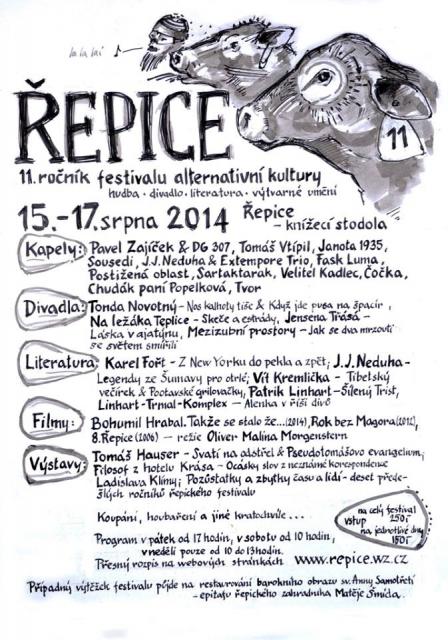 la la lai
11
ŘEPICE
11. ročník festivalu alternativní kultury
hudba • divadlo • literatura • výtvarné umění
15.-17. srpna 2014 Řepice
- knížecí stodola
Kapely: Pavel Zajíček & DG 307, Tomáš Vtípil, Janota 1935,
Sousedi, J.J. Neduha & Extempore Trio, Fask Luma,
Postižená oblast, Sartaktarak, Velitel Kadlec, Čočka,
Chudák paní Popelková, Tvor
Divadla: Tonda Novotný - Nas kalhoty tiše & Když jde pusa na špacír,
Na ležáka Teplice - Skeče a estrády, Jensena Trása -
Láska v ajatýnu, Mezizubní prostory - Jak se dva mrzouti
se světem smířili
Literatura: Karel Fořt - Z New Yorku do pekla a zpět; J.J. Neduha-
Legendy ze Šumavy pro otrlé; Vít Kremlička - Tibetský
večírek & Pootavské grilovačky, Patrik Linhart - Šílený Trist,
Linhart-Trmal-Komplex - Alenka v říši divů
Filmy: Bohumil Hrabal. Takže se stalo že...(2014), Rok bez Magora (2012),
8. Řepice (2006) - režie Oliver Malina Morgenstern
Výstavy: Tomáš Hauser - Svatí na odstřel & Pseudotomášovo evangelium;
Filosof z hotelu Krása - Ocásky slov z neznámé korespondence
Ladislava Klímy; Pozůstatky a zbytky času a lidí - deset přede-
šlých ročníků řepického festivalu
Koupání, houbaření a jiné kratochvíle ...
na celý festival
vstup 250,-
na jednotlivé dny
150,-
Program v pátek od 17 hodin, v sobotu od 10 hodin,
v neděli pouze od 10 do 13 hodin.
Přesný rozpis na webových stránkách www.repice.wz.cz
Případný výtěžek festivalu půjde na restaurování barokního obrazu sv. Anny Samotřetí
- epitafu řepického zahradníka Matěje Šmída.